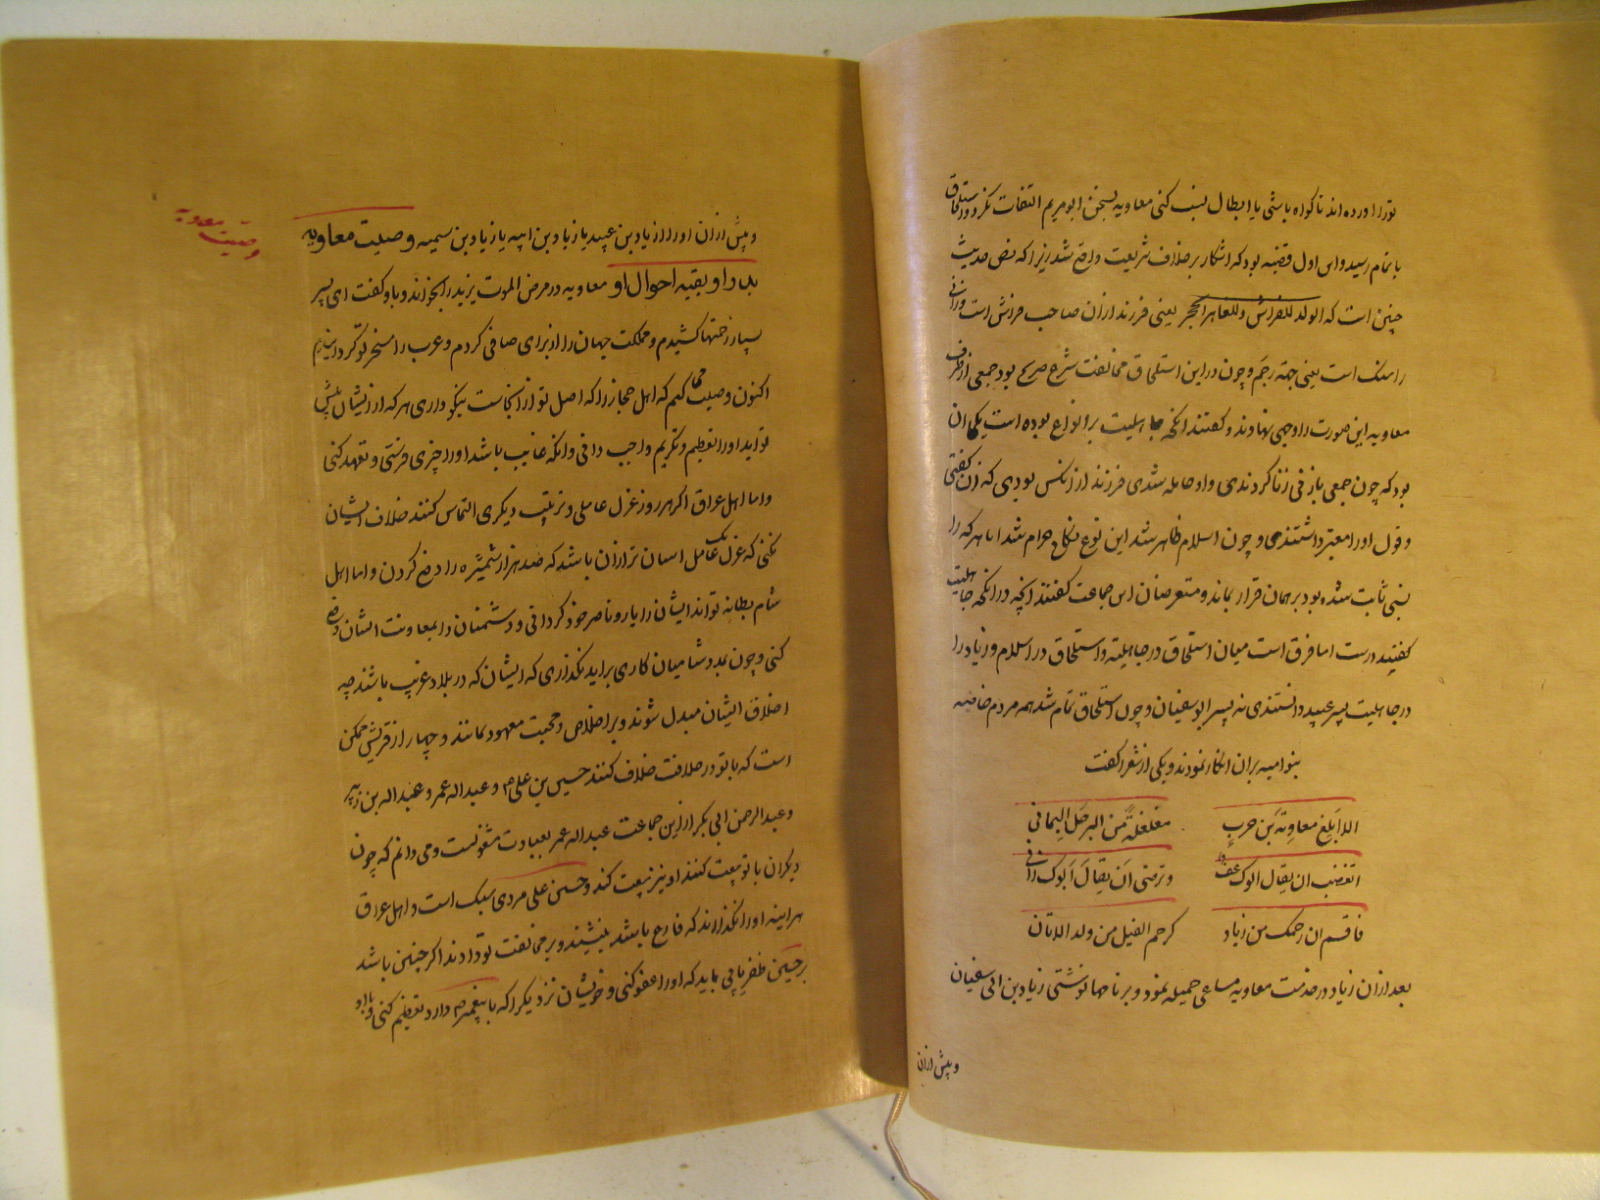 ترا آورده اند تا گواه باشی یا ابطال نسب کنی معاویه بسخن ابو مریم التفات نکرد و استلحاق
باتمام رسید و این اول قضیه بود که آشکار برخلاف شریعت واقع شد زیرا که نص حدیث
چنین است که الولد للفراش وللعاهر الحجر یعنی فرزند ازان صاحب فراش است و زانی
را سنک است یعنی جهة رجم و چون در این استلحاق مخالفت شرع صریح بود جمعی از طرف
معاویه این صورت را وجهی نهادند و کفتند انکحه جاهلیت بر انواع بوده است یکی آن
بود که چون جمعی با زنی زنا کردندی و او حامله شدی فرزند از آنکس بودی که زن کفتی
و قول او را معتبر داشتندی و چون اسلام ظاهر شد این نوع نکاح حرام شد اما هر که را
نسبی ثابت شده بود بر همان قرار بماند و متعرضان این جماعت کفتند آنچه در انکحه جاهلیت
کفتید درست اما فرق است میان استلحاق در جاهلیة و استلحاق در اسلام و زیاد را
در جاهلیت پسر عبید دانستندی نه پسر ابوسفیان و چون استلحاق تمام شد همه مردم خاصه
بنو امیه بر ان انکار نمودند و یکی از شعرا کفت
الا ابلغ معاویة بن حرب مغلغلة من الرجل الیمانی
اتغضب ان یقال ابوک عف و ترضی ان یقال ابوک زانی
فاقسم ان رحمک من زیاد کرحم الفیل من ولد الاتان
بعد ازان زیاد در خدمت معاویه مساعی جمیله نمود و بر نامها نوشتی زیاد بن ابی سفیان
و پیش ازان
و پیش ازان او را زیاد بن عبید یا زیاد بن امیه یا زیاد بن سمیه وصیت معاویه
وصیت معاویه
یزید را و بقیه احوال او معاویه در مرض الموت یزید را بخواند و با او کفت ای پسر
بسیار زحمتها کشیدم و مملکت جهان را از برای صافی کردم و عرب را مسخر تو کردانیدم
اکنون وصیت میکنم که اهل حجاز را که اصل تو از آنجاست نیکو داری هر که از ایشان پیش
تو آید او را تعظیم و تکریم واجب دانی و آنکه غایب باشد او را چیزی فرستی و تعهد کنی
و اما اهل عراق اکر هر روز عزل عاملی و ترتیب دیکری التماس کنند خلاف ایشان
نکنی که عزل یک عامل آسان تر ازان باشد که صد هزار شمشیر را دفع کردن و اما اهل
شام بطانه تو اند ایشان را یار و ناصر خود کردانی و دشمنان را بمعاونت ایشان دفع
کنی و چون بمدد شامیان کاری براید نکذاری که ایشان که در بلاد غریب باشند چه
اخلاق ایشان مبدل شوند و بر اخلاص و محبت معهود نمانند و چهار از قریش ممکن
است که با تو در خلافت خلاف کنند حسین بن علی و عبداله عمر و عبداله بن زبیر
و عبدالرحمن ابی بکر ازین جماعت عبداله عمر بعبادت مشغولست و می دانم که چون
دیکران با تو بیعت کنند او نیز بیعت کند و حسین علی مردی سبک است و اهل عراق
هراینه او را نکذارند که فارغ باشد بنشیند و بر مخالفت تو دارند اکر چنین باشد
بر حسین ظفر یابی باید که او را عفو کنی و خویشان نزدیک را که با پیغمبر دارد تعظیم کنی و با او